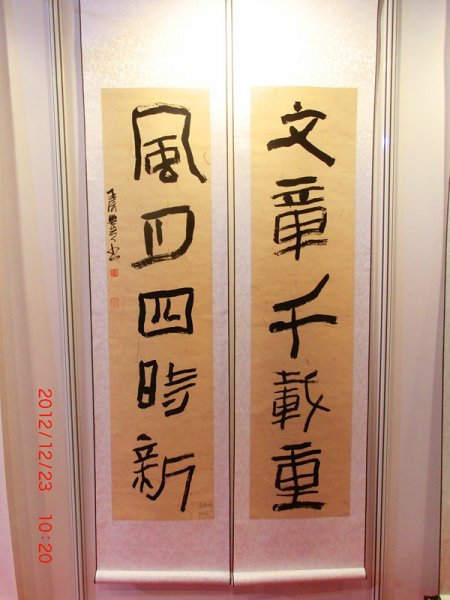 文章千載重
風月四時新
2012/12/23 10:20